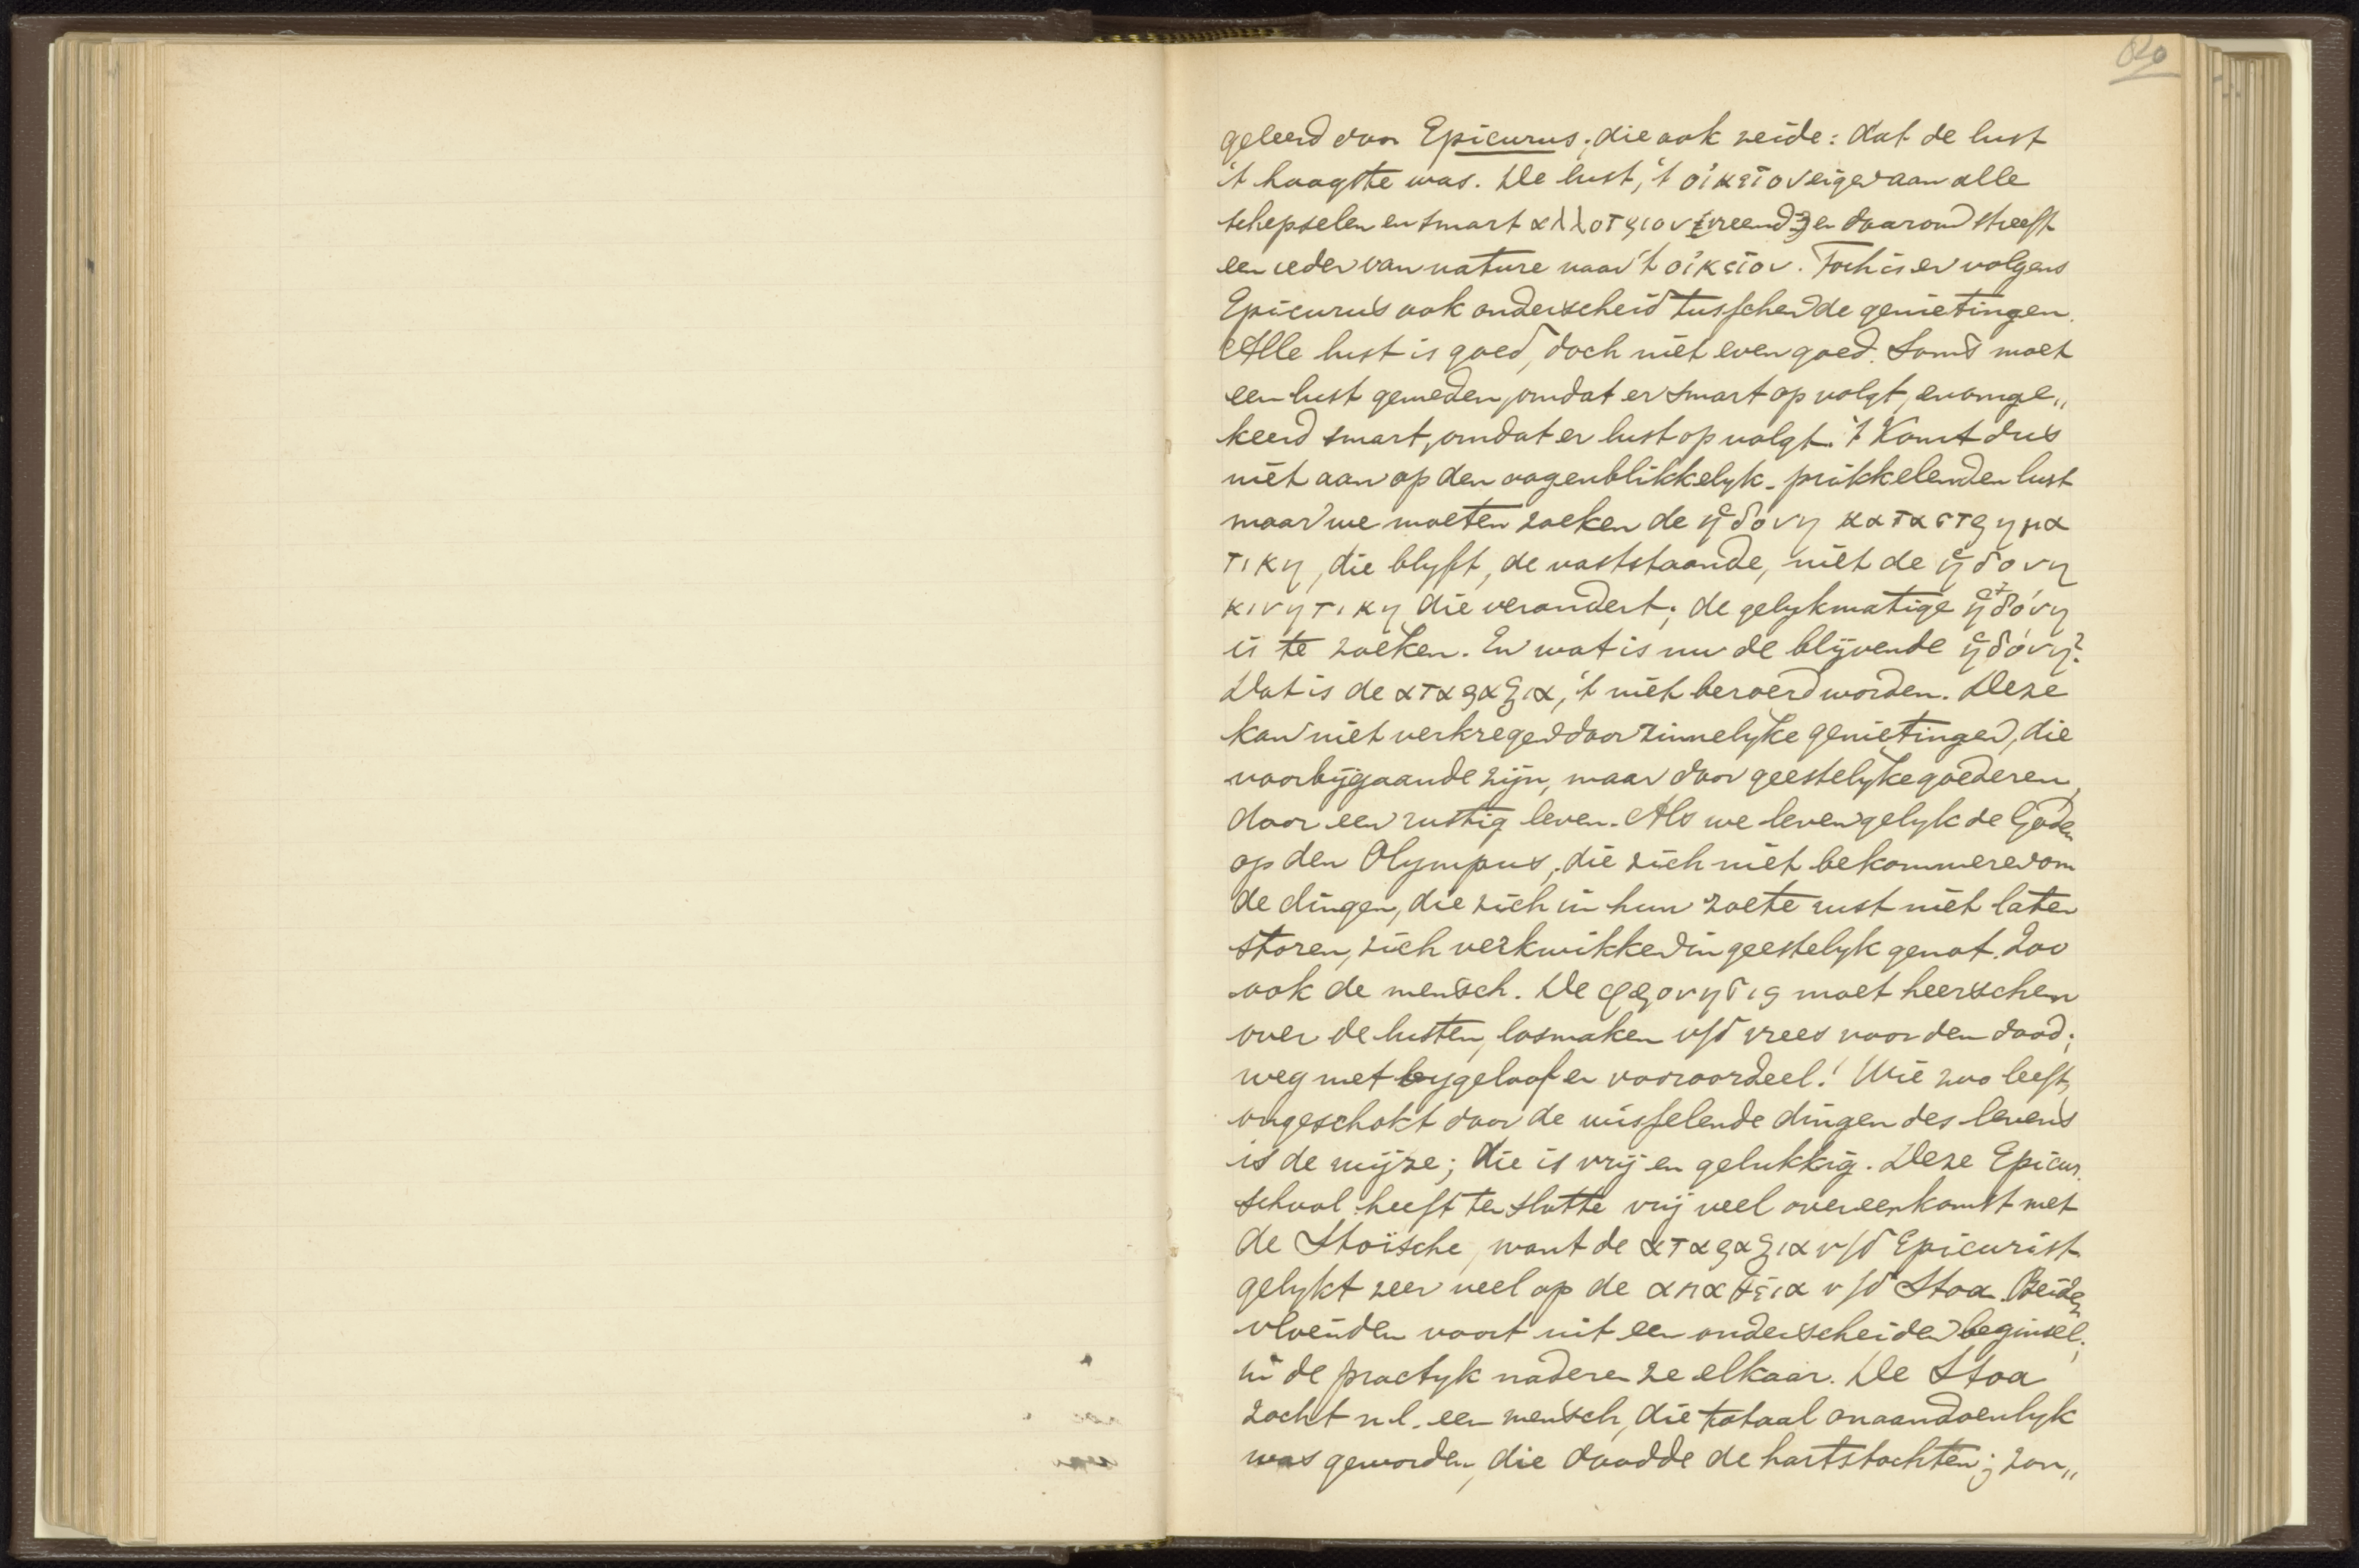 geleerd door Epicurus; die ook zeide: dat de lust
't hoogste was. De lust, 't οἰκεῖον eigen aan alle
schepselen en smart αλλοτριον vreemd en daarom streeft
een ieder van nature naar 't οἰκεῖον. Toch is er volgens
Epicurus ook onderscheid tusschen de genietingen.
Alle lust is goed, doch niet even goed. Soms moet
een lust gemeden, omdat er smart op volgt, en omge„
keerd smart, omdat er lust op volgt. 't Komt dus
niet aan op den oogenblikkelyk-prikkelenden lust
maar we moeten zoeken de ἡδονη καταστρημα
τικη, die blyft, de vaststaande, niet de ἡδονη
κινητικη die verandert; de gelykmatige ἡδόνη
is te zoeken. En wat is nu de blijvende ἡδόνη?
Dat is de αταραξια, 't niet beroerd worden. Deze
kan niet verkregen door zinnelyke genietingen, die
voorbijgaande zijn, maar door geestelyke goederen,
door een rustig leven. Als we leven gelyk de Goden
op den Olympus, die zich niet bekommeren om
de dingen, die zich in hun zoete rust niet laten
storen, zich verkwikken in geestelyk genot. Zoo
ook de mensch. De φρονησις moet heerschen
over de lusten, losmaken v/d vrees voor den dood;
weg met bygeloof en vooroordeel! Wie zoo leeft,
ongeschokt door de wisselende dingen des levens
is de wijze; die is vrij en gelukkig. Deze Epicur.
school heeft ten slotte vrij veel overeenkomst met
de Stoïsche, want de αταραξια v/d Epicurist
gelykt zeer veel op de απαθεια v/d Stoa. Beiden
vloeiden voort uit een onderscheiden beginsel;
in de practyk naderen ze elkaar. De Stoa
zocht n.l. een mensch, die totaal onaandoenlyk
was geworden, die doodde de hartstochten; zon„